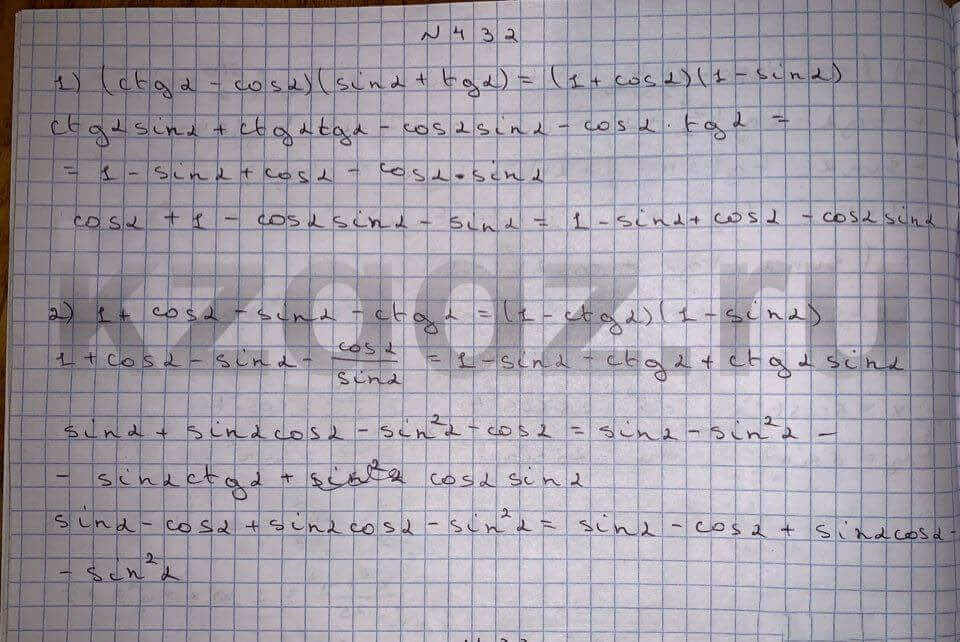 N 432
1) (ctgα - cosα)(sinα + tgα) = (1 + cosα)(1 - sinα)
ctgα sinα + ctgα tgα - cosα sinα - cosα · tgα =
= 1 - sinα + cosα - cosα · sinα
cosα + 1 - cosα sinα - sinα = 1 - sinα + cosα - cosα sinα
kzgdz.ru
2) 1 + cosα - sinα - ctgα = (1 - ctgα)(1 - sinα)
1 + cosα - sinα - cosα/sinα = 1 - sinα - ctgα + ctgα sinα
sinα + sinα cosα - sin²α - cosα = sinα - sin²α -
- sinα ctgα + cosα sinα
sinα - cosα + sinα cosα - sin²α = sinα - cosα + sinα cosα -
- sin²α